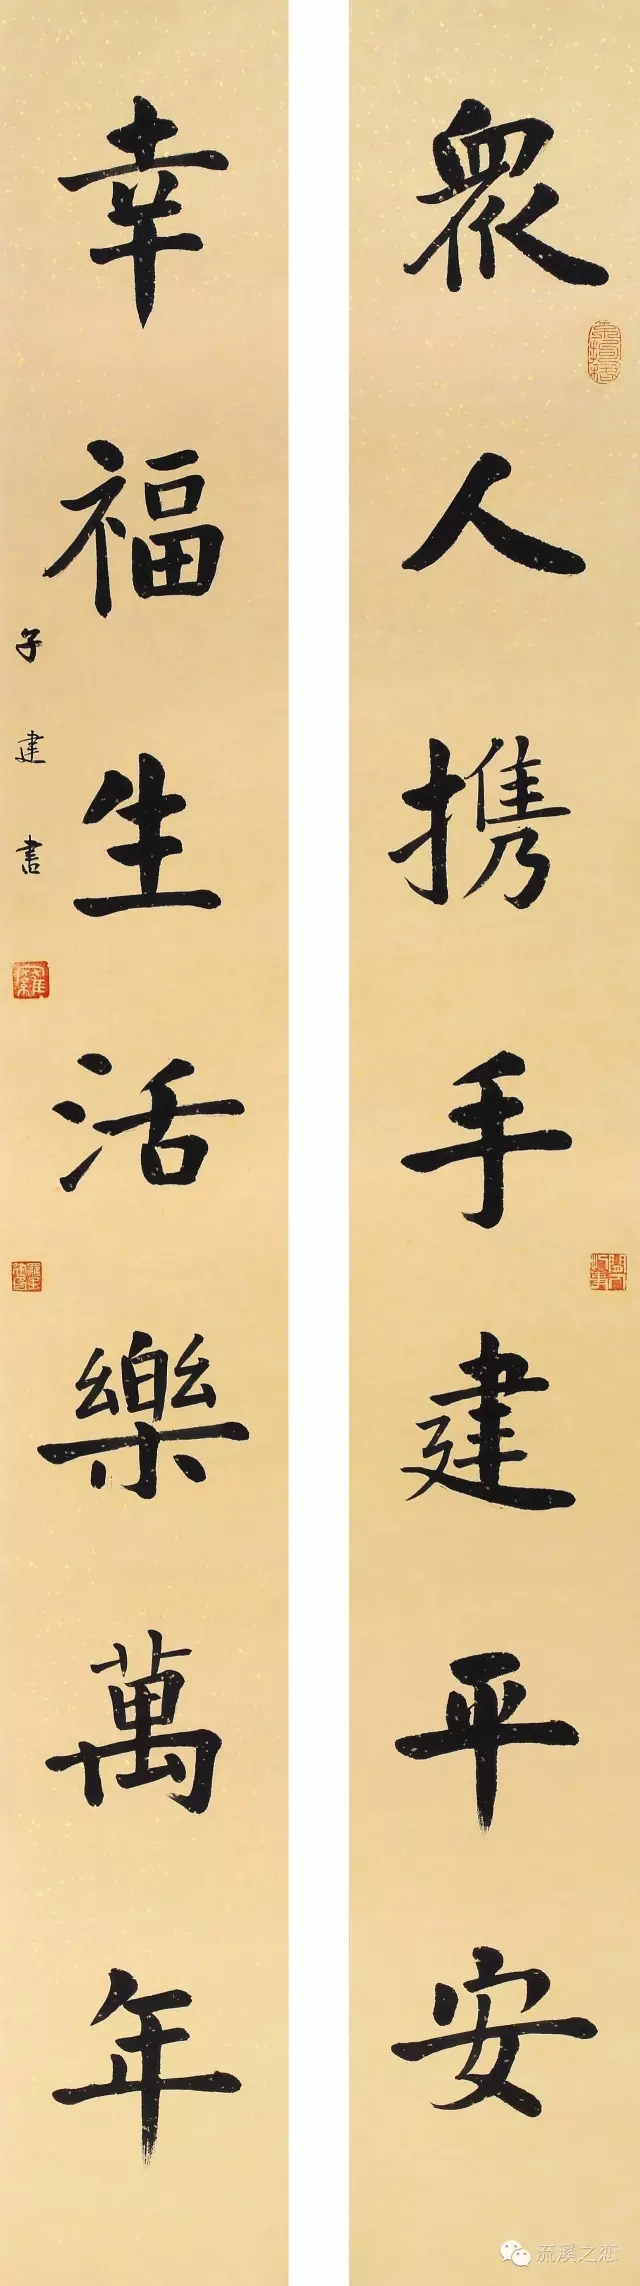 眾人携手建平安
幸福生活樂萬年
子建書
流溪之恋